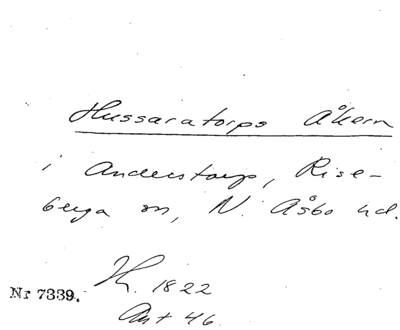 Hussaratorps Åkern
i Anderstorp, Rise-
berga sn, N. Åsbo hd.
H. 1822
Nr 7339.
Ant 46